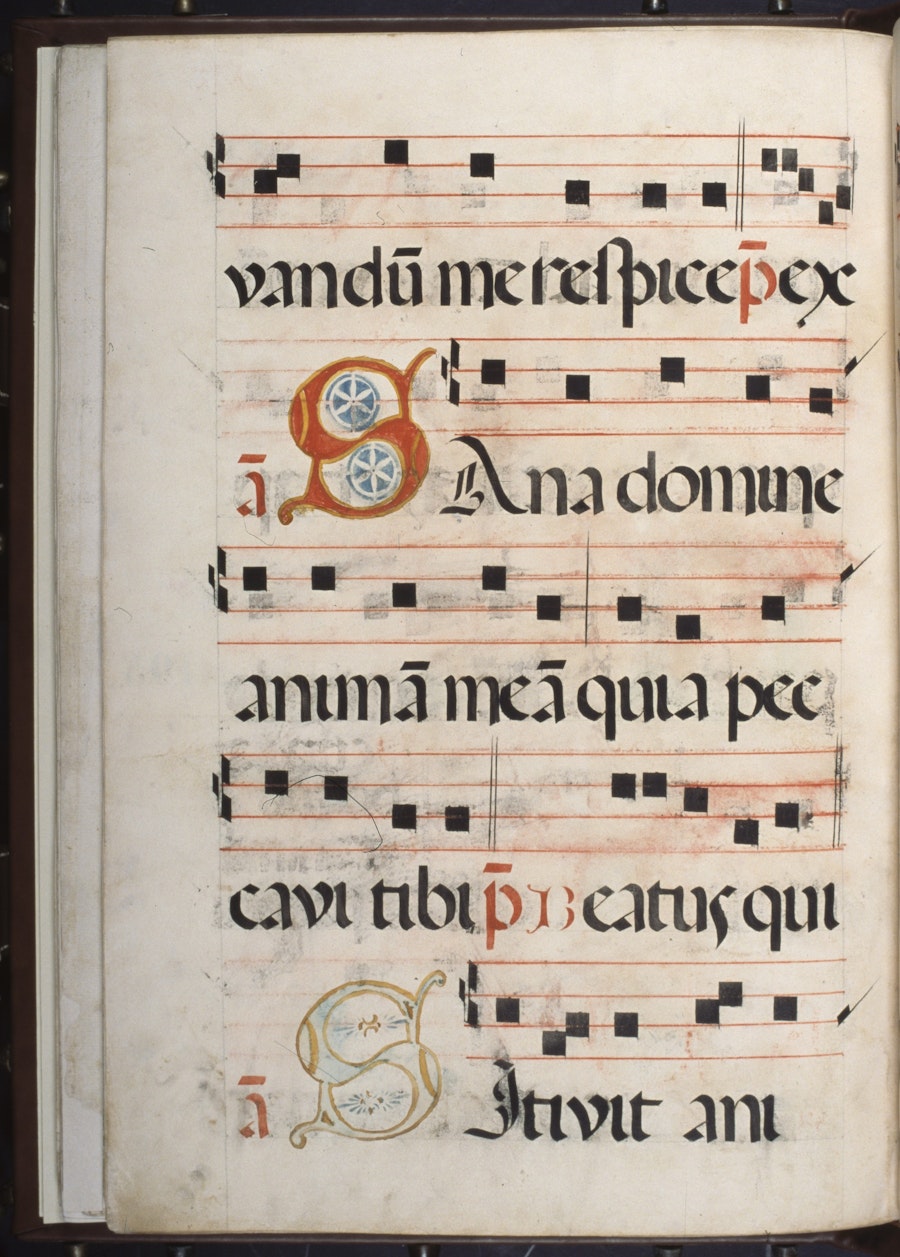 vandū me respice p̄ ex
ā SAna domine
animā meā quia pec
cavi tibi p̄ Beatus qui
ā SItivit ani